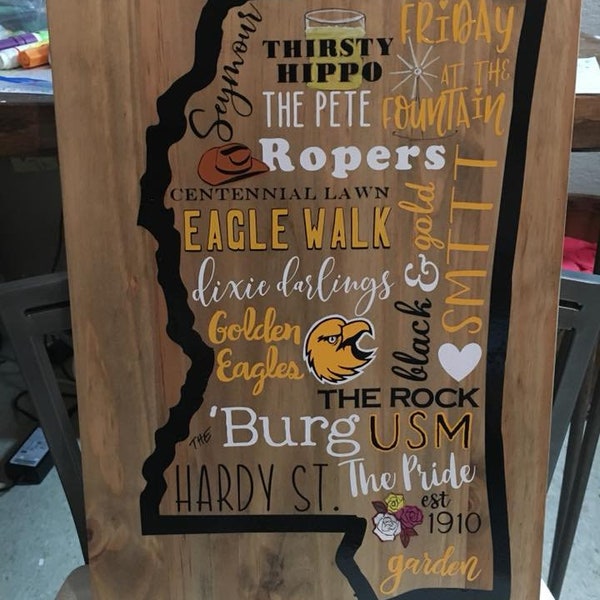 Seymour
THIRSTY
HIPPO
FRIDAY
AT THE
FOUNTAIN
THE PETE
Ropers
CENTENNIAL LAWN
EAGLE WALK
black & gold
SMTTT
dixie darlings
Golden
Eagles
THE ROCK
THE 'Burg
USM
HARDY ST.
The Pride
est
1910
garden